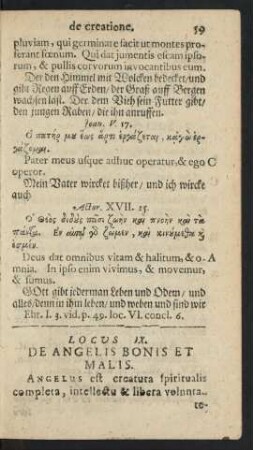 de creatione. 59
pluviam, qui germinare facit ut montes pro-
ferant fœnum. Qui dat jumentis escam ipso-
rum, & pullis corvorum invocantibus eum.
Der den Himmel mit Wolcken bedecket/und
gibt Regen auff Erden/ der Graß auff Bergen
wachsen läst. Der dem Vieh sein Futter gibt/
den jungen Raben/ die ihn anruffen.
Joan. V. 17.
Ο πατήρ μου ἕως ἄρτι ἐργάζεται, κἀγὼ ἐρ-
γάζομαι.
Pater meus usque adhuc operatur, & ego
operor.
Mein Vater wircket bißher/ und ich wircke
auch
Actor. XVII. 25.
Ο Θεὸς διδοὺς πᾶσι ζωὴν καὶ πνοὴν καὶ τὰ
πάντα. Εν αυτῷ γὸ ζῶμεν, καὶ κινούμεθα καὶ
ἐσμέν.
Deus dat omnibus vitam & halitum, & o-
mnia. In ipso enim vivimus, & movemur,
& sumus.
GOtt gibt jederman Leben und Odem/ und
alles/denn in ihm leben/ und weben und sind wir
Ehr. I. 3. vid. p. 49. loc. VI. concl. 6.
LOCUS IX.
DE ANGELIS BONIS ET
MALIS.
ANGELUS est creatura spiritualis
completa, intellectu & libera volunta-
te-